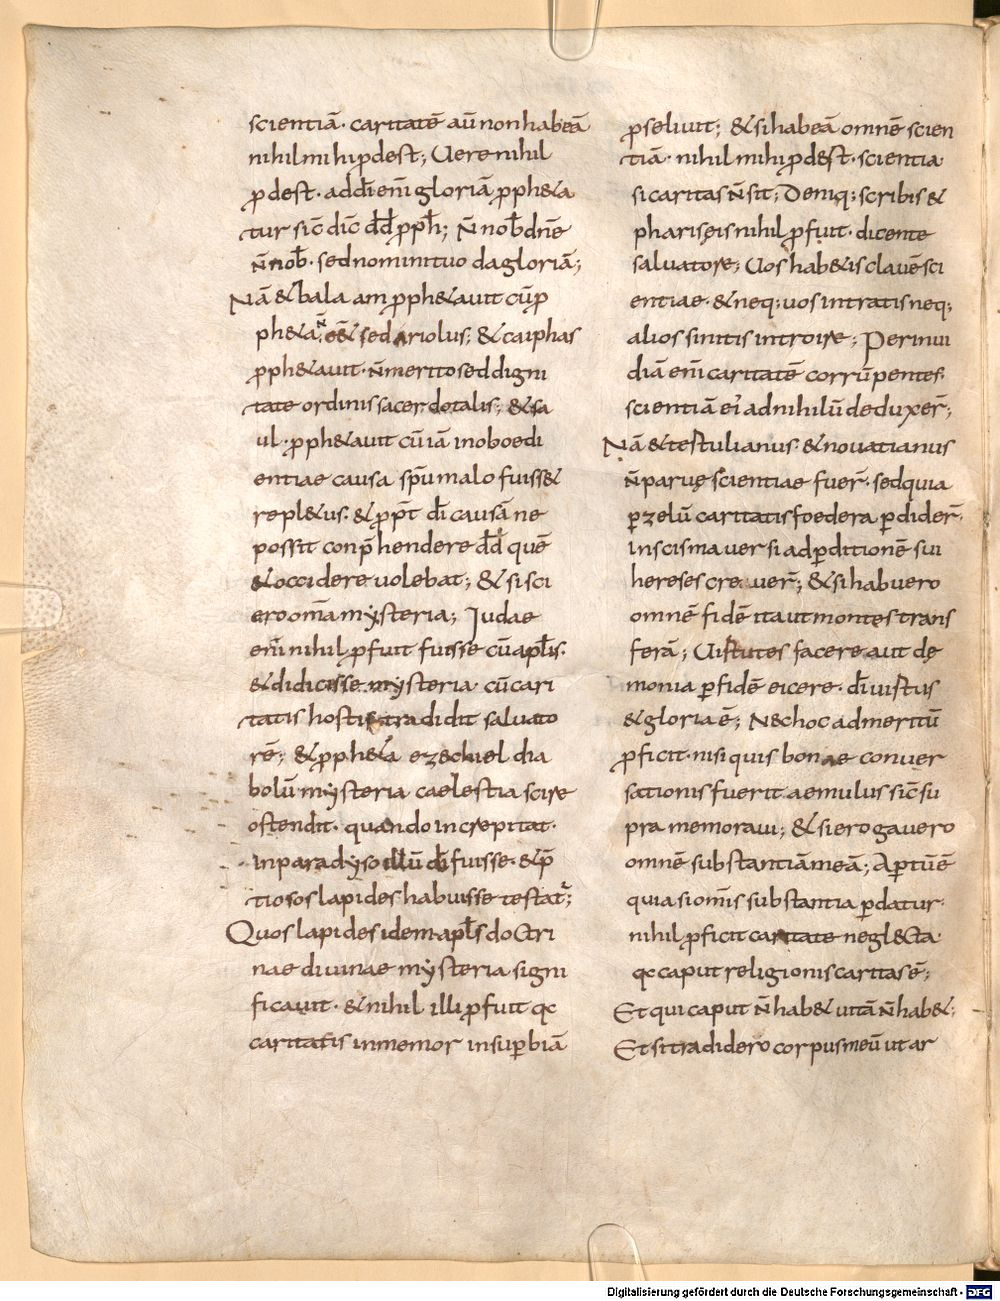 scientiā· caritatē aū non habeā
nihil mihi ꝓdest; Uere nihil
ꝓdest· ad dī enī gloriā ꝓph&a
tur sic̄ dic̄ dd̄ ꝓph̄; N̄ nob̄ dn̄e
n̄ nob̄· sed nomini tuo da gloriā;
Nā & balaam ꝓph&auit cū ꝓ
ph&a n̄ e&̄ sed ariolus; & caiphas
ꝓph&auit· n̄ merito sed digni
tate ordinis sacerdotalis; & sa
ul· ꝓph&auit cū iā inoboedi
entiae causa sp̄u malo fuiss&
repl&us· & ꝓpt̄ dī causā ne
possit conp̄hendere dd̄ quē
& occidere uolebat; & si sci
ero om̄a mysteria; Judae
enī nihil ꝓfuit fuisse cū apl̄is·
& didicisse mysteria cū cari
tatis hostis tradidit saluato
rē; & ꝓph&a ezechiel dia
bolū mysteria caelestia scire
ostendit· quando increpitat·
in paradyso illū dī fuisse· & p̄
tiosos lapides habuisse testat̄;
Quos lapides idem apl̄s doctri
nae diuinae mysteria signi
ficauit· & nihil illi ꝓfuit qc
caritatis inmemor in suꝑbiā
ꝓseliuit; & si habeā omnē scien
tiā· nihil mihi ꝓdest· scientia
si caritas n̄ sit; Deniq; scribis &
phariseis nihil ꝓfuit· dicente
saluatore; Uos hab&is clauē sci
entiae· & neq; uos intratis neq;
alios sinitis introire; Per inui
diā enī caritatē corrūpentes·
scientiā ei ad nihilū deduxer̄;
Nā & testulianus· & nouatianus
n̄ paruę scientiae fuer̄· sed quia
ꝑ zelū caritatis foedera ꝑdider̄·
in scisma uersi ad ꝑditionē sui
hereses creauer̄; & si habuero
omnē fidē ita ut montes trans
ferā; Uistutes facere aut dę
monia ꝑ fidē eicere· dī uistus
& gloria ē; Nec hoc ad meritū
ꝓficit· nisi quis bonae conuer
sationis fuerit aemulus sic̄ su
pra memoraui; & si erogauero
omnē substantiā meā; Aꝑtū ē
quia si om̄is substantia ꝑdatur·
nihil ꝓficit caritate neglecta·
qc caput religionis caritas ē;
Et qui caput n̄ hab& uitā n̄ hab&;
Et si tradidero corpus meū ut ar
Digitalisierung gefördert durch die Deutsche Forschungsgemeinschaft - DFG